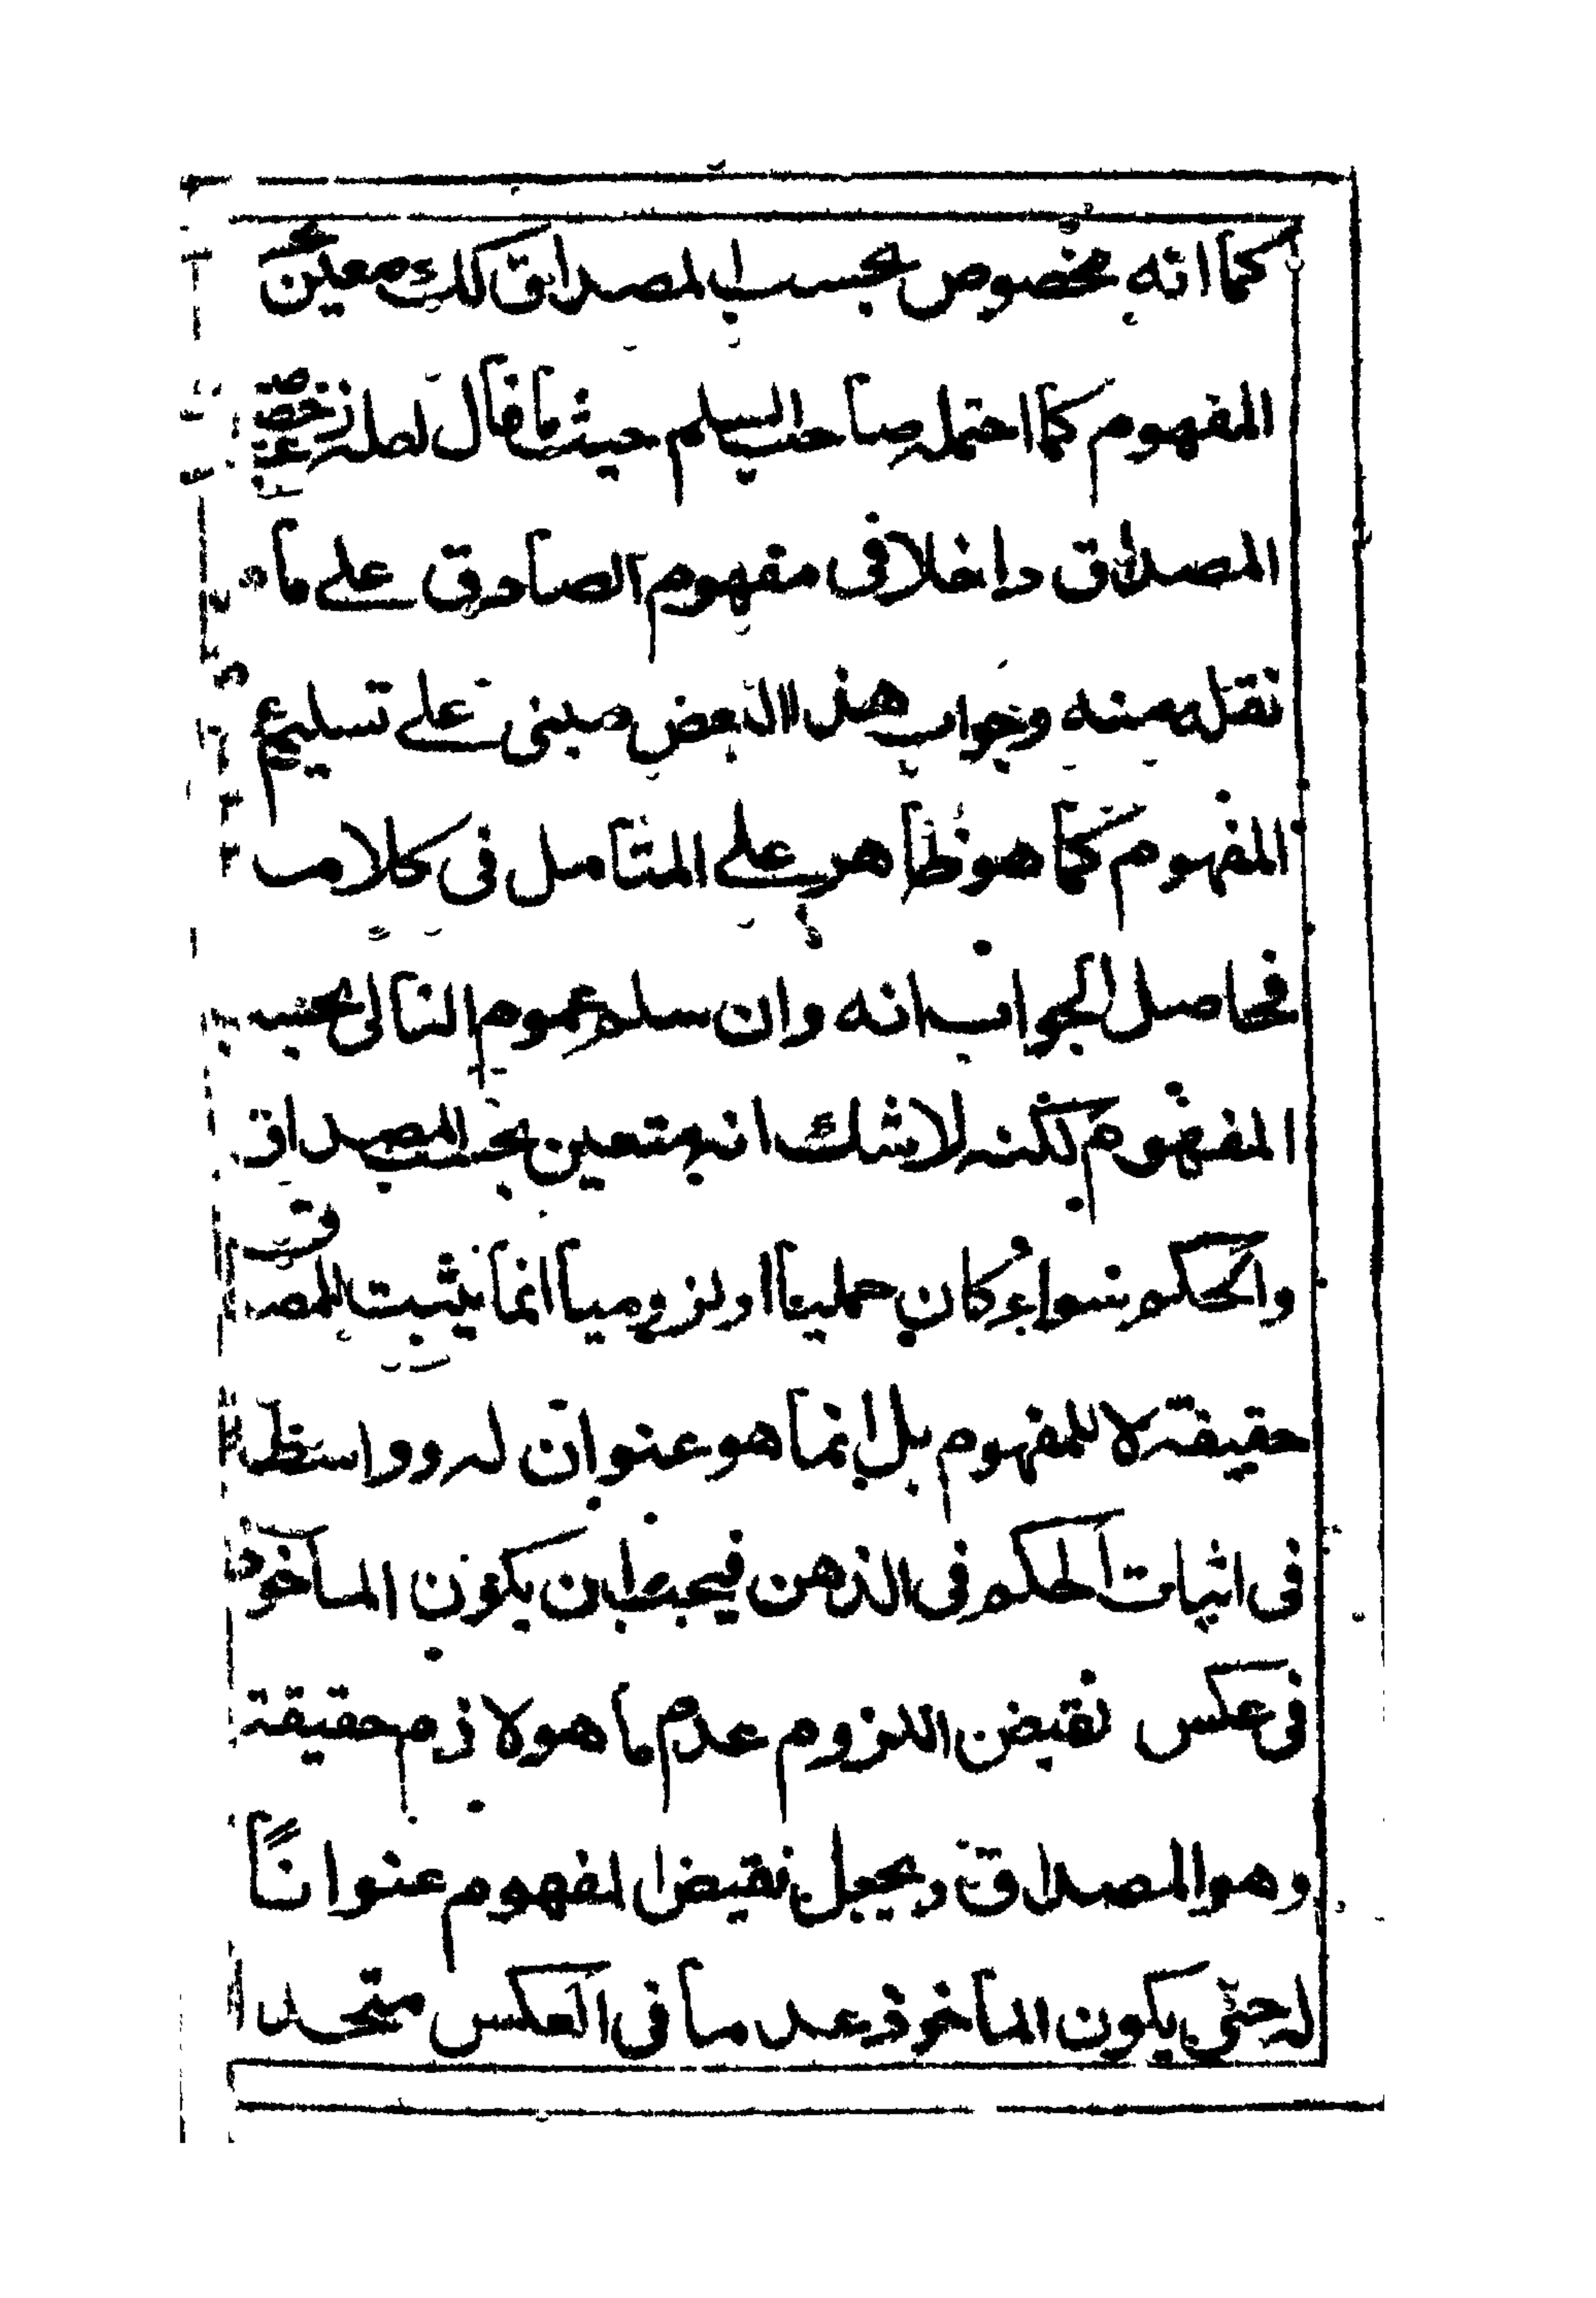 كما انه مخصوص بحسب المصداق كك معين بحسب
المفهوم كما احتمله صاحب السلم حيث ما قال لعله زعم خصوصية
المصداق داخلا فى مفهوم الصادق على ما
نقل منه وجواب هذا البعض مبنى على تسليم عموم
المفهوم كما هو ظاهر على المتامل فى كلامه
فحاصل الجواب انه وان سلم عموم التالى بحسب
المفهوم لكنه لا شك انه متعين بحسب المصداق
والحكم سواء كان حمليا او لزوميا انما يثبت للمصداق
حقيقة لا للمفهوم بل انما هو عنوان له وواسطة
فى اثبات الحكم فى الذهن فيجب ان يكون الماخوذ
فى عكس نقيض اللزوم عدم ما هو لازم حقيقة
وهو المصداق ويجعل نقيض المفهوم عنوانًا
له حتى يكون الماخوذ عدما فى العكس متحدا